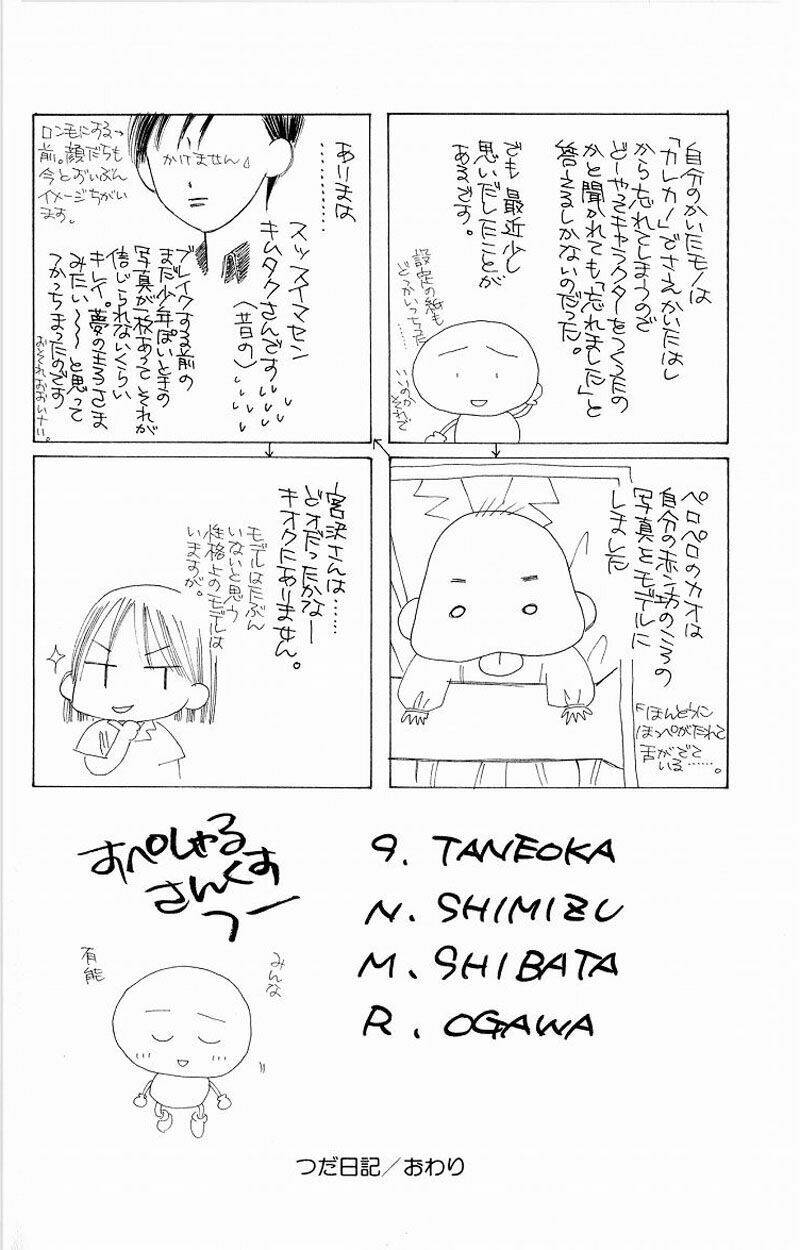 自分のかいたモノは
「カレカノ」でさえかいたはし
から忘れてしまうので
どーやってキャラクターをつくったの
かと聞かれても「忘れました」と
答えるしかないのだった。
でも 最近少し
思いだしたことが
あるです。
設定の紙も
どっかいっちった
ペロペロのカオは
自分の赤ン坊のころの
写真をモデルに
しました
ほんとうに
ほっぺがたれて
舌がでて
いる……。
ありまは
…………
スッスイマセン
キムタクさんです
(昔の)
ブレイクする前の
まだ少年ぽいときの
写真が一枚あって それが
信じられないくらい
キレイ。夢の王子さま
みたい〜〜と思って
つかっちまったのです
おそれおおいナリ。
かけません
ロン毛にする
前。顔だちも
今とだいぶん
イメージちがい
ます。
宮沢さんは……
どオだったかなー
キオクにありません。
モデルはたぶん
いないと思う
性格上のモデルは
いますが。
すぺしゃる
さんくす
つー
9. TANEOKA
N. SHIMIZU
M. SHIBATA
R. OGAWA
みんな
有能
つだ日記／おわり